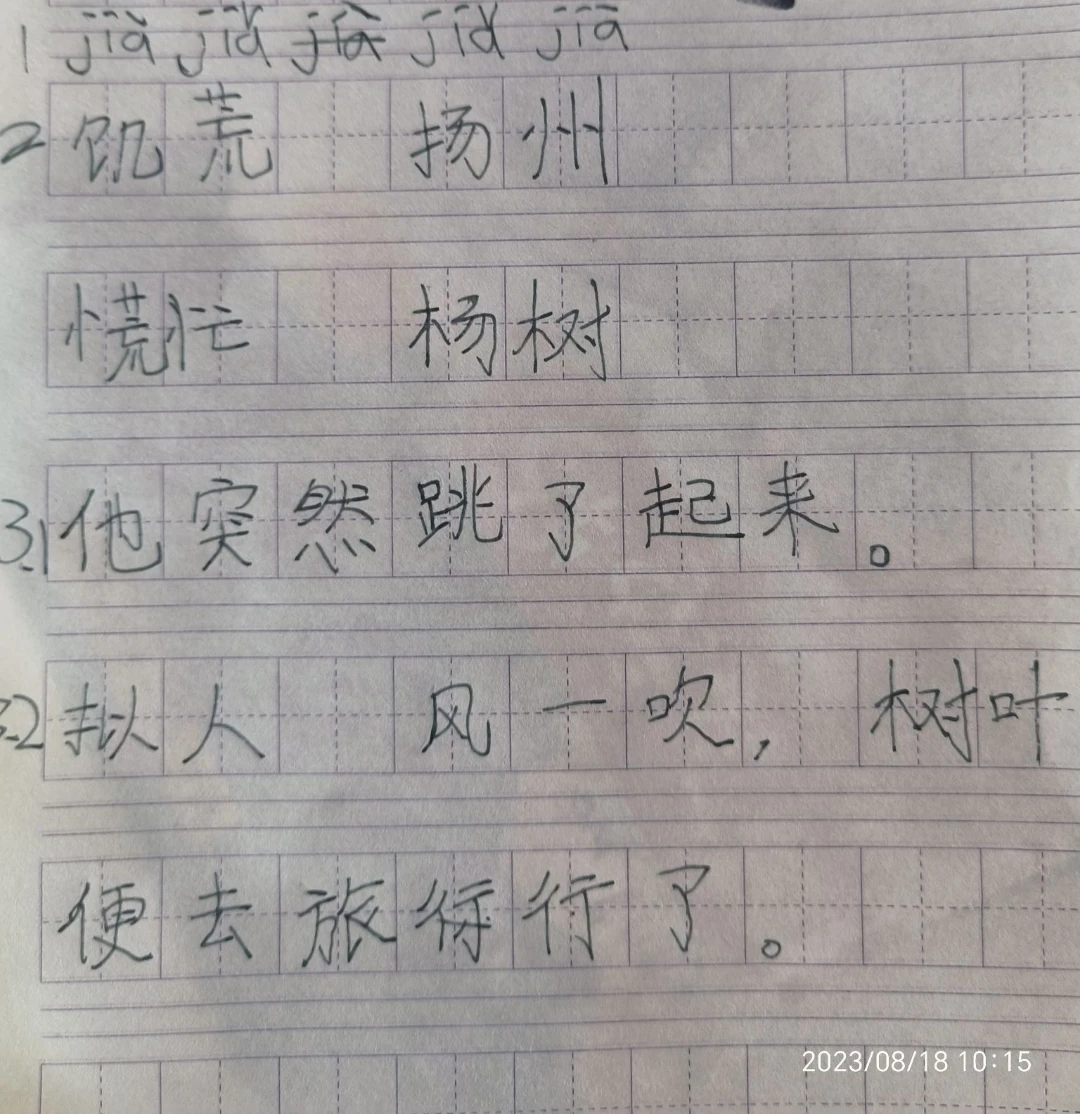 1 jià jiǎ jià jiǎ jiā
2 饥荒 扬州
慌忙 杨树
3.1 他突然跳了起来。
3.2 拟人 风一吹，树叶
便去旅行了。
2023/08/18 10:15